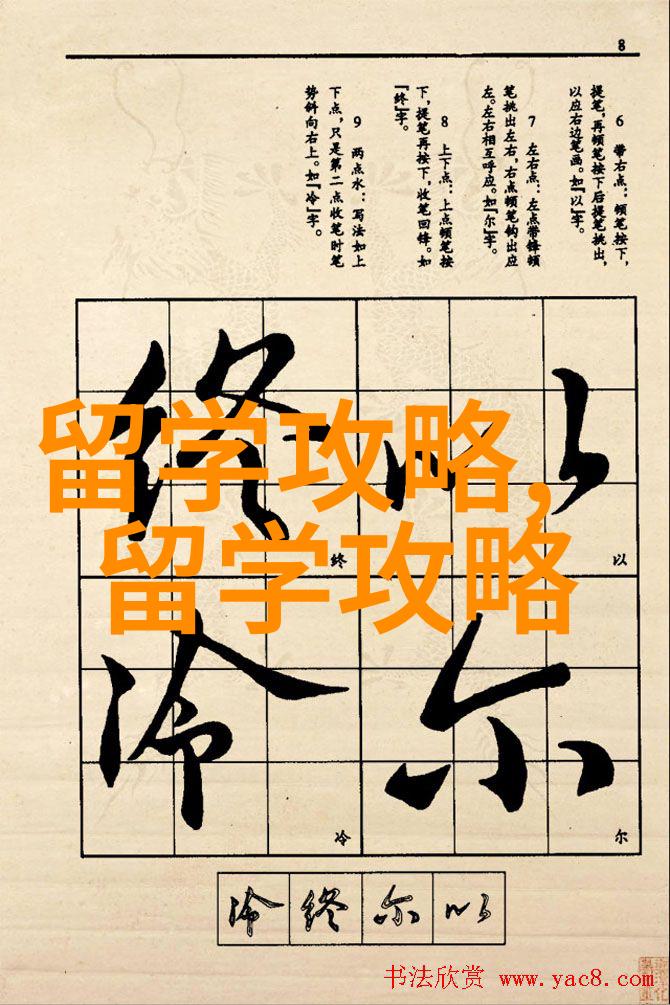 8
6 带右点：顿笔按下，
提笔，再顿笔按下后提笔挑出，
以应右边笔画。如『以』字。
7 左右点：左点带锋顿
笔挑出左右，右点顿笔钩出应
左。左右相互呼应。如『尔』字。
8 上下点：上点顿笔按
下，提笔再按下，收笔回锋。如
『终』字。
9 两点水：写法如上
下点，只是第二点收笔时笔
势斜向右上。如『冷』字。
终 以
留学攻略，
留学攻略
终 以
冷 尔
冷 尔
冷 终 尔 以
书法欣赏 www.yac8.com